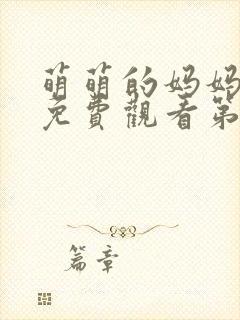 萌萌的妈妈
免費觀看第
篇章